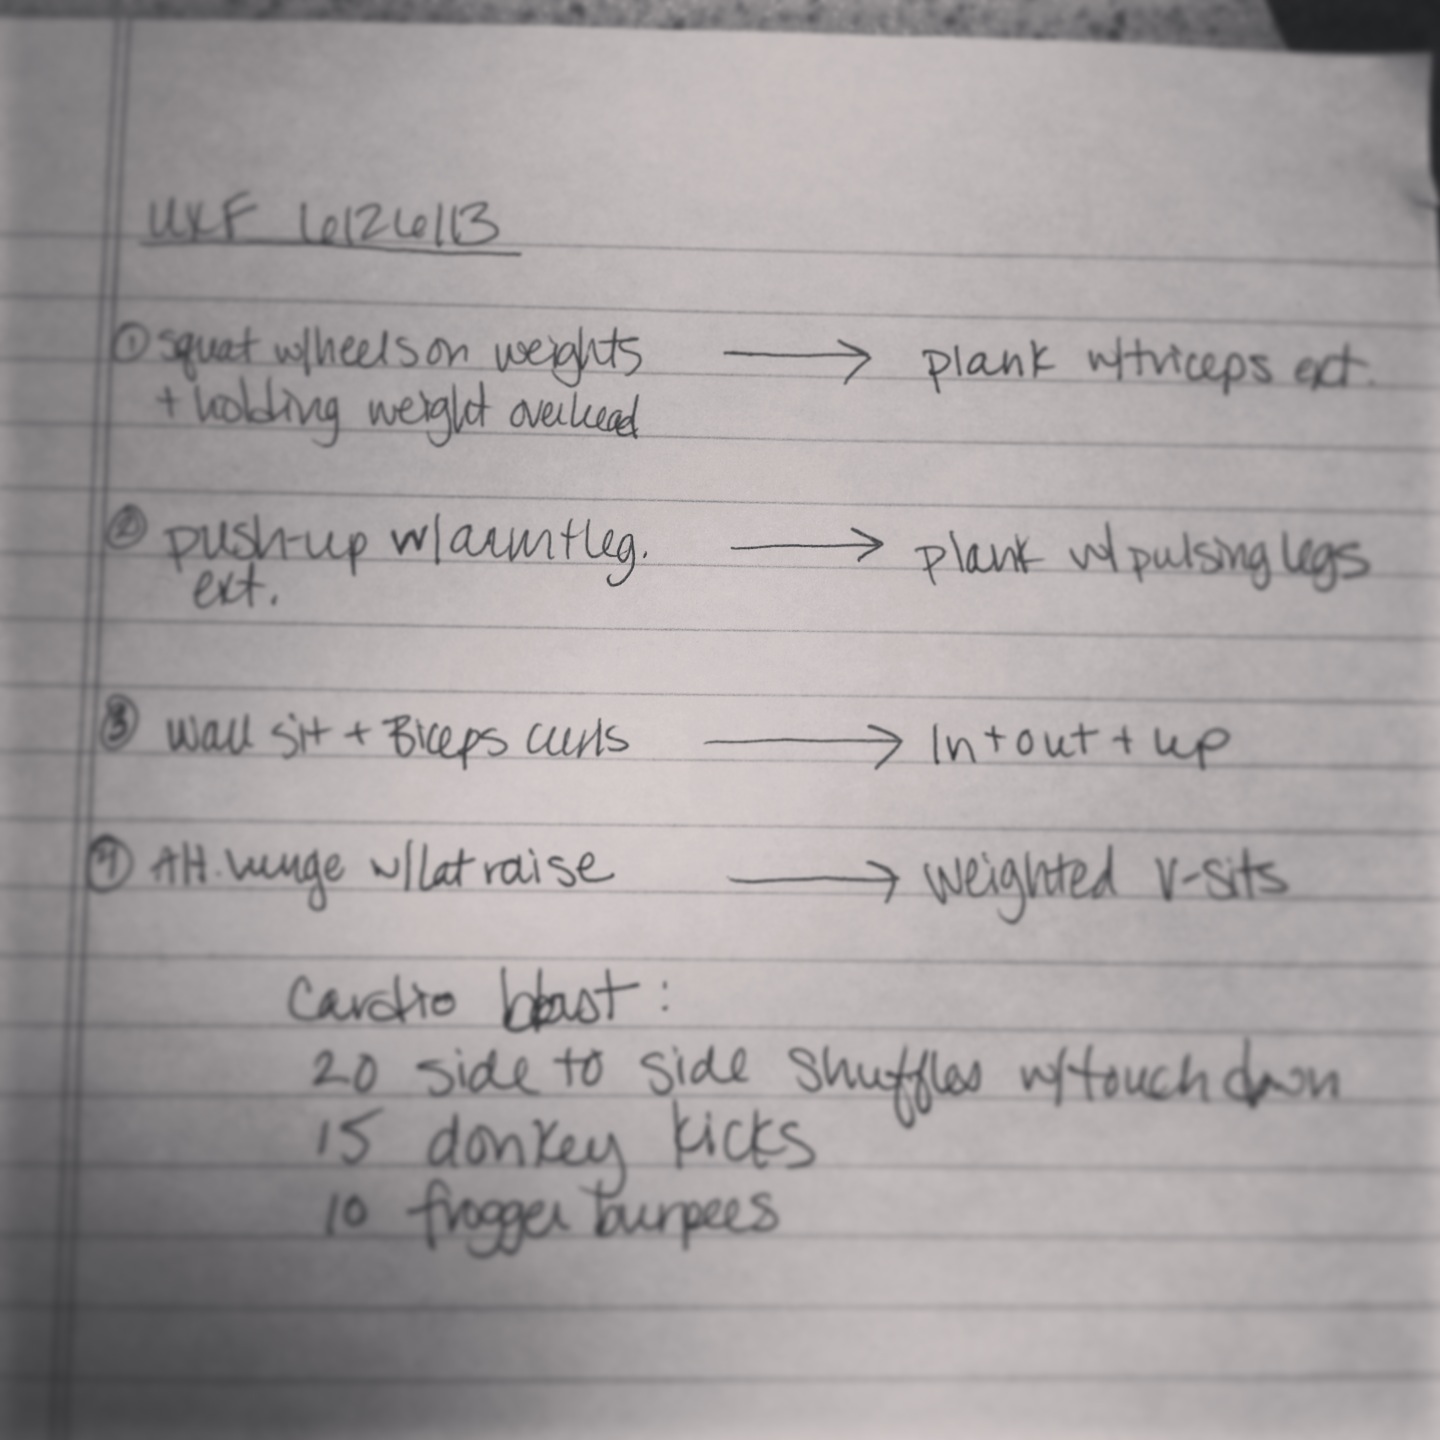 UXF 6/26/13
① squat w/heels on weights → plank w/triceps ext.
+ holding weight overhead
② push-up w/arm+leg. → plank w/pulsing legs
ext.
③ wall sit + Biceps curls → In + out + up
④ Alt. lunge w/lat raise → weighted v-sits
Cardio blast:
20 side to side shuffles w/touch down
15 donkey kicks
10 frogger burpees